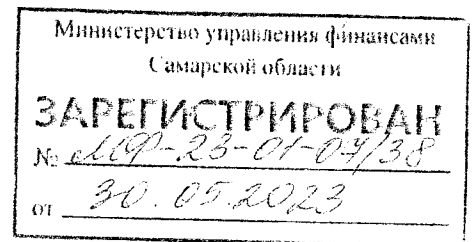 Министерство управления финансами
Самарской области
ЗАРЕГИСТРИРОВАН
№ МФ-23-01-07/38
от 30.05.2023